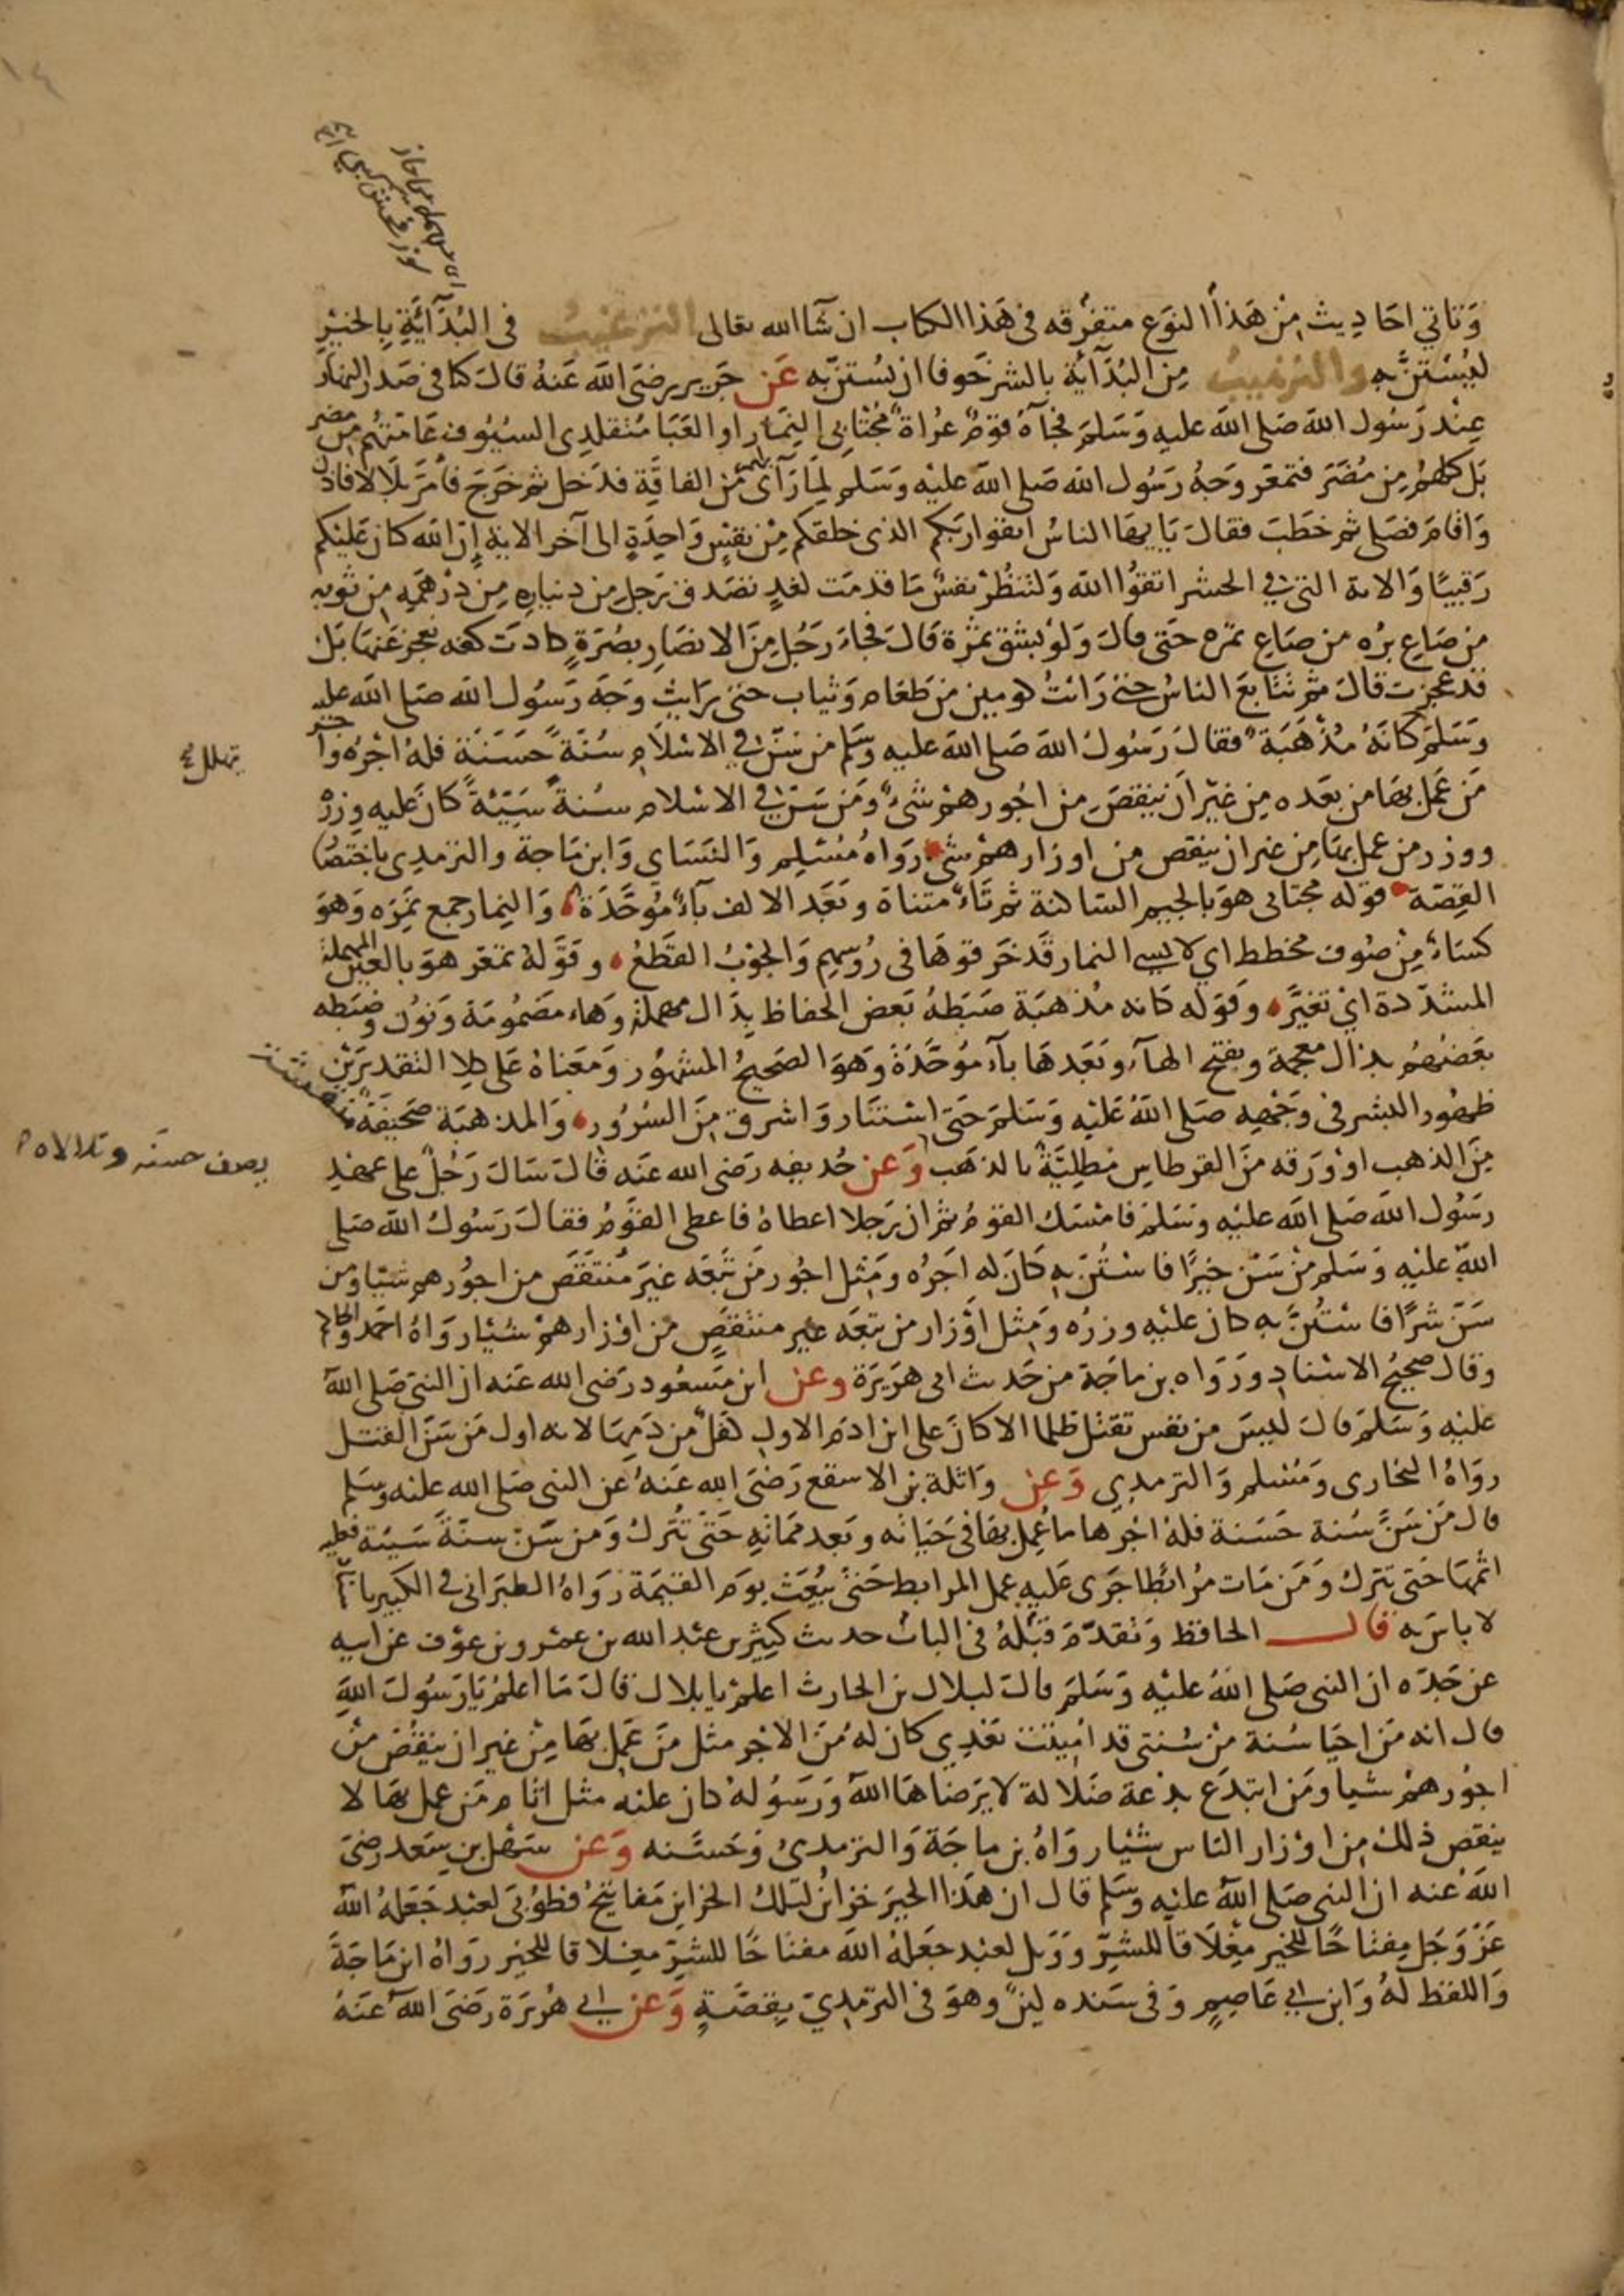 وَتاتي احَادِيث مِنْ هَذا النوَع متفرقه فى هَذا الكتاب ان شَآ الله تعالى الترغيبُ فى البُدَآيَةِ بِالخيْرِ
ليُسْتنَّ بِهِ والترهيبُ مِن البُدَآيَة بالشر خَوفا ان يُستنّ به عَن جَرير رضىَ الله عَنهُ قالَ كنا فى صَدر النهَار
عِنْد رَسُول الله صَلى الله عليه وَسَلمَ فجآءَهُ قومٌ عرُاة مُجْتابِى النِمَار او العَبَا مُتقلدِى السيُوف عَامتهُم مِن مضر
بَل كلهُم مِن مُضَرَ فتمعّر وَجهُ رَسُول الله صَلى الله عليْه وَسَلم لِمَا رَآى بهم مِّن الفاقَةِ فدَخل ثمَ خَرَجَ فأمَرَ بلَالا فاذن
وَاقامَ فصَلى ثم خطَبَ فقالَ يَايهَا الناسُ اتقوا ربَكم الذى خلقكم مِنْ نفسٍ وَاحِدَةٍ الى آخر الاية إِنَ الله كان عَليْكم
رَقيبًا وَالاية التى فِي الحشر اتقوُا الله وَلتنظُرْ نفسٌ مَا قدمَت لغدٍ تصَدق رَجل مِن دينارِهِ مِن دِرْهَمِه مِن ثوبه
مِن صَاعِ برُه من صَاعِ تمَره حَتى قالَ وَلوْ بشِق تمرْة قَالَ فجاءَ رَجُل مِنَ الانصَار بصُرَةٍ كادَت كفه تعجز عَنهَا بَل
قد عجزت قالَ ثمَّ تتابَعَ الناسُ حتى رَايتُ كومين من طَعَام وَثياب حتى رَايت وَجَه رَسُول الله صَلى الله عليه
وَسَلمَ كانَهُ مُذْهَبَة فقالَ رَسُولُ الله صَلى الله عليه وسَلم من سَنّ فِي الاسْلَامِ سُنَة حَسَنَة فلهُ اجْرُه واجر
مَن عَمَل بهَا من بعَده مِن غيْر اَن ينقصَ مِن اجُورهمْ شىءٌ وَمَن سَنّ فِي الاسْلام سُنةً سَيّئةً كانَ عليه وِزرُ
ووزر من عمل بهَا مِن غير ان ينقص من اوزارهمْ شىٌ رَوَاهُ مُسْلِم وَالنسَاى وَابن مَاجة والترمدِى باختصَار
القِصَة قوله مجتابى هوَ بالجيم الساكنة ثم تَاءٌ مثناة وبَعَد الالف بآءٌ مُوَحَّدَة وَالنِمار جمع نَمِرَه وَهوَ
كسَاءٌ مِنْ صُوف مخطط اي لابسى النمار قَد خَرقوهَا فى رُوسهِم وَالجوْبُ القطَعُ وقَوَلهُ تمعّر هوَ بالعين المهملة
المشدّدة ايْ تغيَّر وقَوَله كانه مُذهبَة ضبَطَهُ بَعَض الحفاظ بِدَال مهملة وَهاء مضمُومَة وَنُون وضَبَطه
بعَضهُم بذال معجمة وبفتح الهاء وبَعَدهَا بآء مُوَحَّدَة وَهوَ الصَحيحُ المشهُور وَمعَناهُ عَلى كلا التقديرَيْن
ظهُور البشر فى وَجْهِهِ صَلى اللهُ عَليْه وَسَلمَ حَتىَ اسْتنَار وَاشرَق مِنَ السرُور وَالمذهبَة صَحيفَة منقشة
مِنَ الذهب اوْ وَرَقه مِنَ القرطاس مَطلِيَّةٌ بالذهَب وَعن حُذيفه رَضى الله عَنه قالَ سَالَ رَجُلٌ على عَهْدِ
رَسُول الله صَلى الله عليْه وسَلمَ فامْسَك القوم ثم ان رَجلا اعطاهُ فاعطى القوَمُ فقالَ رَسُولُ الله صَلى
اللهَ عليْهِ وَسَلم مَنْ سَنّ خيرًا فاسْتُنّ بِهِ كَانَ له اجَرُه وَمِثل اجُور مَن تبَعَه غيَرَ مُنتقَصَ من اجوُرهم شيئا ومَن
سَنّ شرًّا فاسْتُنّ بِهِ كان عليْه وزرُه وَمِثل اوْزار من تبَعَه غير منتقَصٍ من اوْزارهمْ شيْئا رَوَاهُ احَمد والحاكم
وقال صحيحُ الاسْناد وَرَوَاه بن ماجَة من حَديث ابى هرَيرَة وعن ابن مَسعُود رَضى الله عَنه ان النبىّ صَلى الله
عليْه وَسَلمَ قالَ ليسَ مِن نفس تقتَل ظلما الا كانَ على ابن ادَم الاول كفلٌ مِن دَمِهَا لانه اول مَن سَنّ القتل
روَاهُ البخارى وَمُسْلم وَالترمدِي وَعَن وَاثلة بن الاسقع رَضَى الله عَنهُ عن النبى صَلى الله عليْه وسَلم
قال مَن سَنَّ سُنة حَسَنة فلهُ اجْرها ما عُمِل بهَا فى حَيَاته وبَعد مَمَاتِه حَتى تُترَك وَمن سَن سنةً سَيئة فعليه
اثمهَا حَتى تترك وَمَن مَات مُرابطًا جَرى عَليه عمل المرابط حَتى يُبْعَث يوَم القيمَة رَوَاهُ الطبَرانى فى الكبير باسناد
لا باسَ به قال الحافظ وَتقدّمَ قبْلهُ فى البابْ حديث كثير بن عبْد الله بن عمْرو بن عوْف عن ابيه
عن جَدّه ان النبى صَلى اللهُ عليْه وَسَلمَ قالَ لبلال بن الحارث اعلمْ يا بلال قالَ مَا اعلمُ يَا رَسُولَ اللهِ
قال انه مَن احيَا سُنة مِنْ سُنتى قد امُيتتْ بَعْدِى كان لهُ مِنَ الاجْر مثل مَنَ عَمل بهَا مِنْ غير ان ينقُصَ مِن
اجوُرهمْ شيا ومَن ابتدَع بدْعة ضَلالة لا يَرضاهَا اللهُ وَرَسُولهُ كان عليْه مثل اثام مَن عمل بهَا لا
ينقص ذلك مِن اوْزار الناس شيْئا رَوَاهُ بن ماجَة وَالترمدىُ وَحَسَّنه وَعَن سَهْل بن سَعد رضىَ
اللهُ عنه ان النبى صَلى اللهُ عليْه وسَلم قال ان هَذا الخيَر خزائن لتلكُ الخزاين مَفاتيحُ فطوُبىَ لعبْد جَعَلهُ اللهُ
عَزّ وَجَل مِفتاحًا للخيْر مِغْلَاقا للشرِّ وَوَيل لعبْد جعَلهُ اللهُ مفتاحًا للشرِّ مِغلاقا للخيْر روَاهُ ابن مَاجَة
وَاللفظ لهُ وَابن ابي عَاصِمٍ وَفى سَنده لينٌ وهوَ فى الترمذِيّ بِقصَّةٍ وَعن ابي هُرَيرَة رَضىَ اللهُ عَنهُ
يتهلل
يصف حسنه وتلالاه